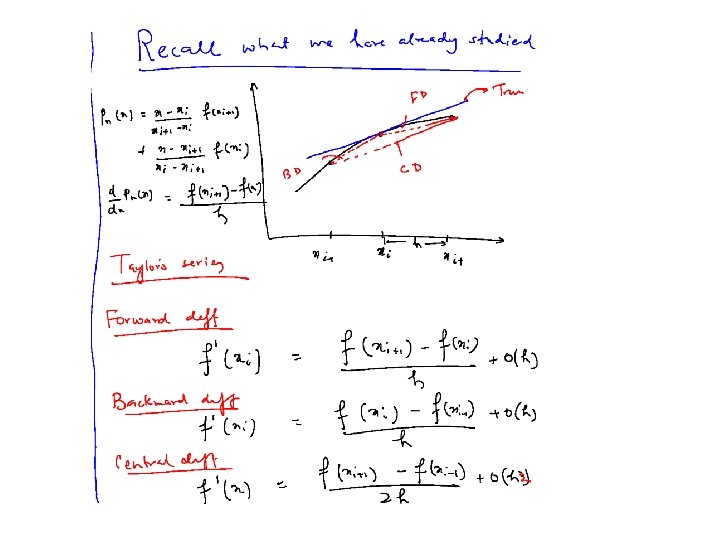 Recall what we have already studied
Pn(x) = x - xi / xi+1 - xi f(xi+1)
+ x - xi+1 / xi - xi+1 f(xi)
d/dx Pn(x) = f(xi+1) - f(xi) / h
FD
BD
CD
xi-1
xi
h
xi+1
Taylor's series
Forward diff
f'(xi) = f(xi+1) - f(xi) / h + O(h)
Backward diff
f'(xi) = f(xi) - f(xi-1) / h + O(h)
Central diff
f'(x) = f(xi+1) - f(xi-1) / 2h + O(h2)